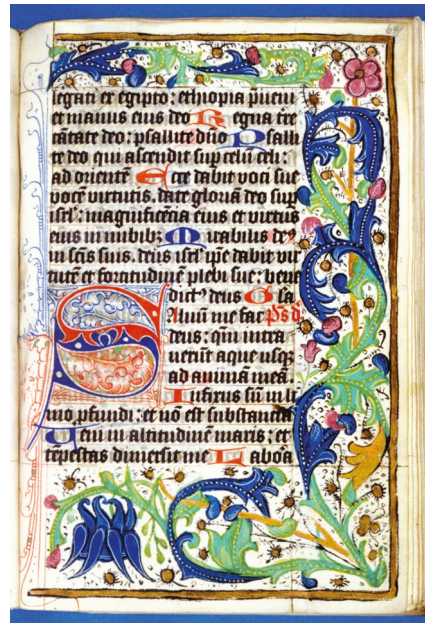 legati ex egipto: ethiopia pueni
et manus eius deo Regna tre
cãtate deo: psallite dño Psalli
te deo qui ascendit sup celũ celi:
ad orientẽ Ecce dabit voci sue
vocẽ virtutis. date gloriã deo sup
isrl: magnificẽcia eius et virtus
eius in nubibꝫ Mirabilis deꝰ
in scĩs suis. deus isrl ipe dabit vir
tutẽ et fortitudinẽ plebi sue: bene
dictꝰ deus
Saluũ me fac
deus: qm̃ intra
uerũt aque usqꝫ
ad animã meã.
Infixus sũ in li
mo pfundi: et nõ est substancia
Ueni in altitudinẽ maris: et
tẽpestas dimersit me Laboa